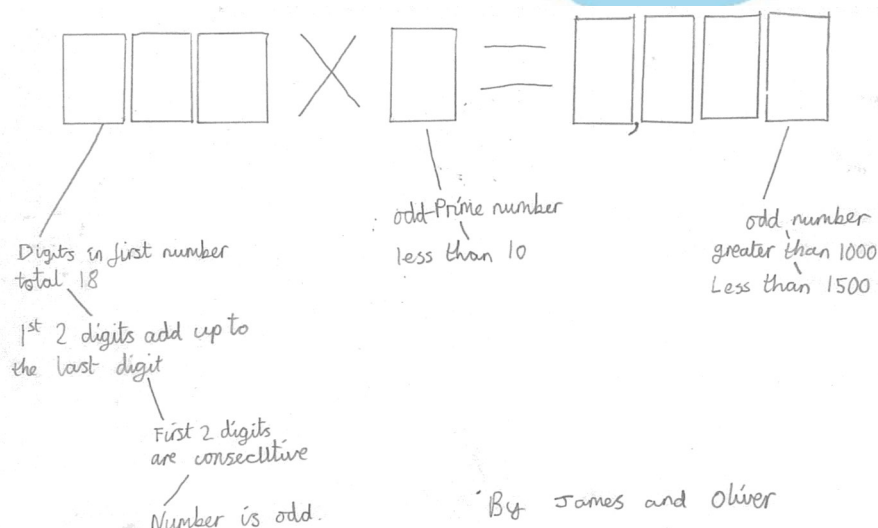 × =
,
Digits in first number
total 18
1st 2 digits add up to
the last digit
First 2 digits
are consecutive
Number is odd.
odd Prime number
less than 10
odd number
greater than 1000
Less than 1500
By James and Oliver